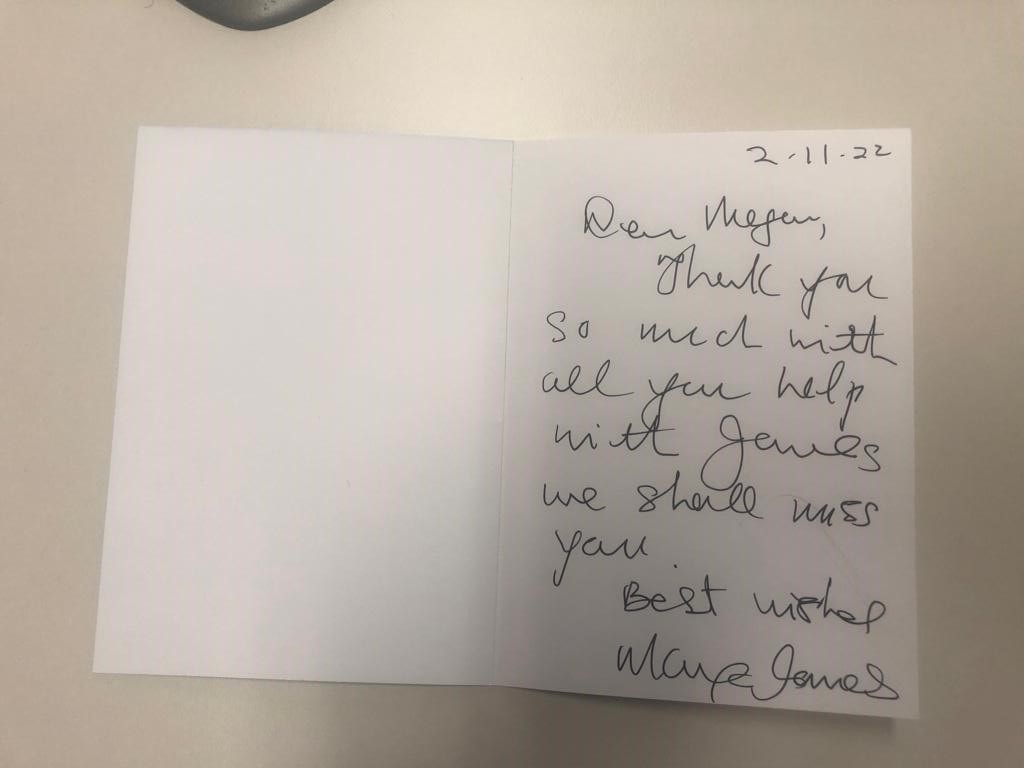 2.11.22
Dear Megan,
Thank you
so much with
all your help
with James
we shall miss
you.
Best wishes
James